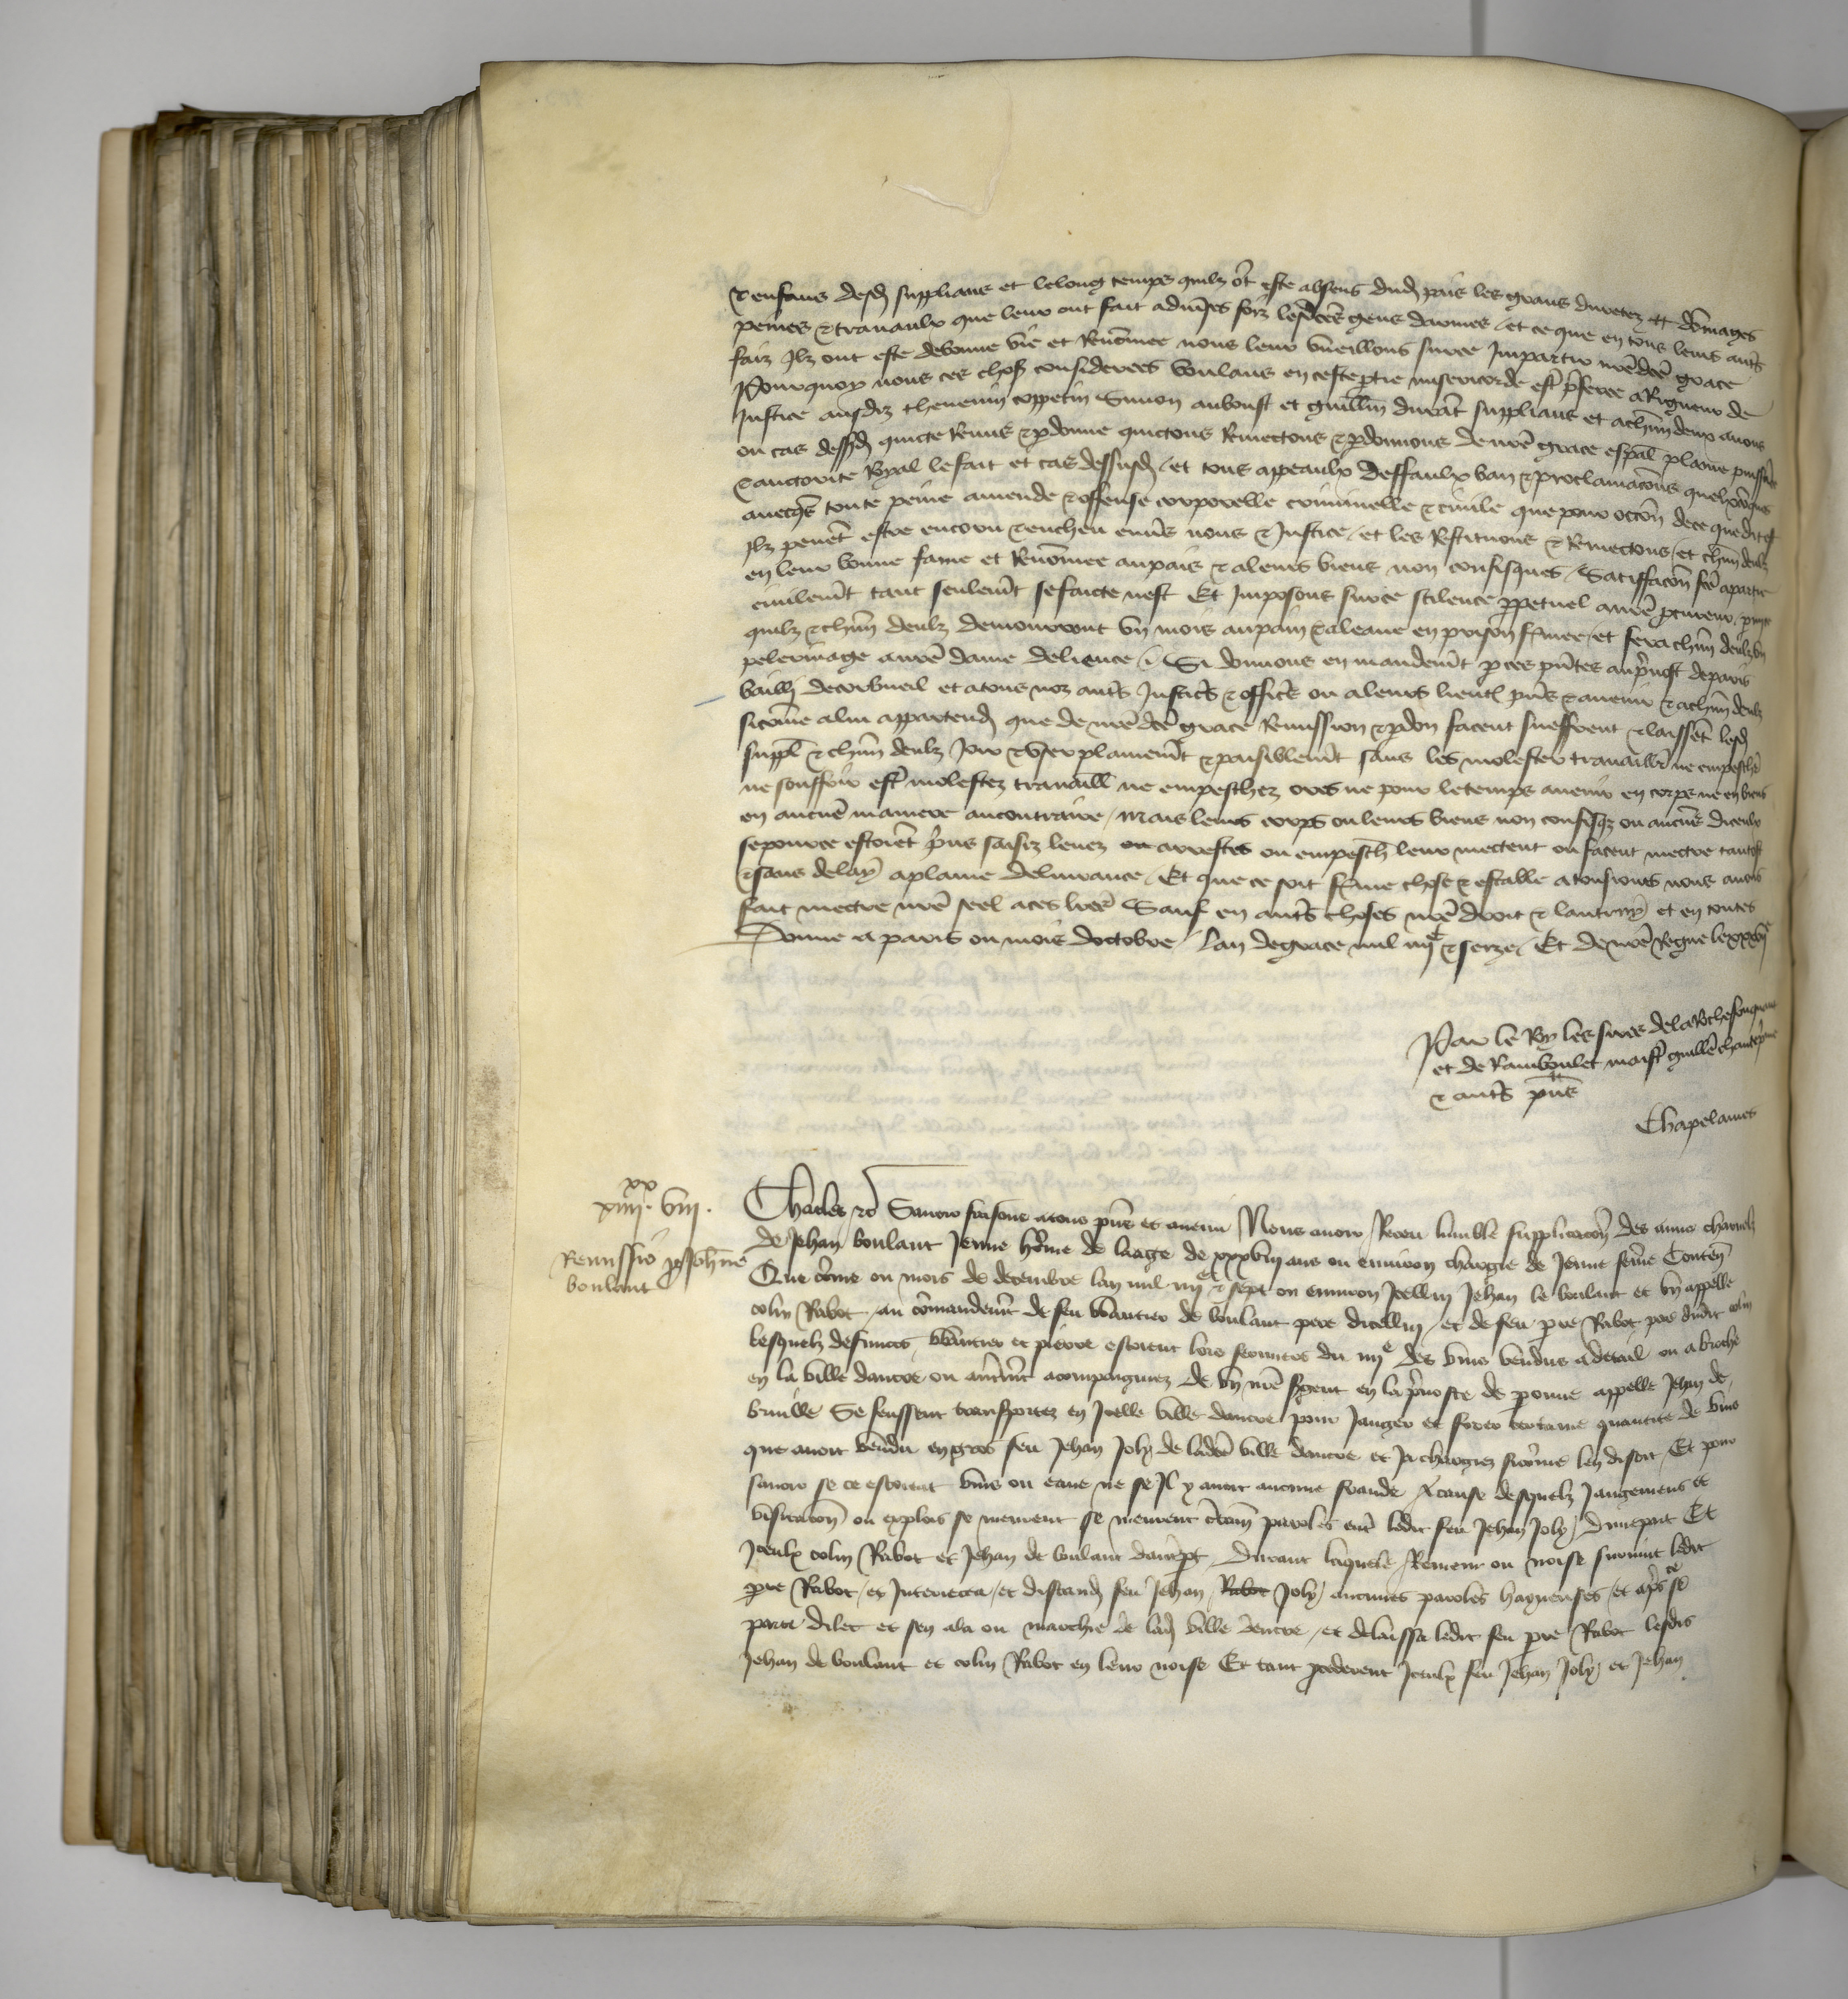 & enfans desd supplians et le long temps quilz ont este absens dud pais les grans duretez et dommages
peines & travaulx que leur ont fait lesdces gens darmes / et ce que en tous leurs auts
faiz Ilz ont este de bonne vie et Renommee nous leur vueillons surce Impartir nre dce grace
Pourquoy nous ces choses considerees voulans en ceste ptie misericorde estre preferee a Rigueur de
Justice ausdiz thevenin coppetin Simon auboust et guillin durant supplians et a chun deux avons
ou cas dessusd quicte Remis & pdonne quictons Remectons & pdonnons de nre grace espal plaine puissce
& auctorite Royal le fait et cas dessusd / et tous appeaulx deffaulx ban & proclamacons quelxconqs
avecqs toute peine amende & offense corporelle criminelle & civile que pour occon de ce que dit est
Ilz pevent estre encouru & encheu envers nous & Justice / et les Restituons & Remectons / et chun deulz
en leur bonne fame et Renommee au pais & a leurs biens non confisques / Satiffacon fce a partie
civilemt tant seulemt se faicte nest Et Imposons surce scilence ppetuel a nre pcureur / pmy ce
quilz & chun deulz demourront un mois au pain & a leaue en prison fermee / et fera chun deulz un
pelerinage a nre dame de lience / Si donnons en mandemt p ces pntes au pruost de paris
bailli de corbueil et a tous noz auts Justics & offics ou a leurs lieuts pns & avenir & a chun deulz
sicome a lui appartend que de nre dce grace Remission & pdon facent sueffrent & laissent lesd
suppl & chun deulz Joir & user plainemt & paisiblemt sans les molester travaillr ne empeschr
ne souffrir estre molestez travaill ne empeschez ores ne pour le temps avenir en corps ne en biens
en aucune maniere au contraire / Mais leurs corps ou leurs biens non confisqz ou aucuns diceulx
se pource estoient prins saisiz levez ou arrestes ou empesch leur mectent ou facent mectre tantost
& sans delay a plaine delivrance / Et que ce soit ferme chose & estable a tousiours nous avons
fait mectre nre seel a ces lres Sauf en auts choses nre droit & lautruy et en toutes
Donne a paris ou mois doctobre / Lan de grace mil iiiic & seize / Et de nre Regne le xxxvie
Par le Roy les sires de la Rochefouquaut
et de Rambouillet maist guille chanteprime
& auts pns
Chapelaines
xiiiixx. viii.
Remissio p Johne
boulant
Charles &c Savoir faisons a tous pns et avenir Nous avoir Receu lumble supplicacon des amis charnelz
de Jehan boulant Jeune home de laage de xxxviii ans ou environ chargie de Jeune feme Contenant
Que come ou mois de decembre lan mil iiiic & sept ou environ Icellui Jehan le boulant et un appelle
colin Rabot / au comandemt de feu vautier de boulant pere dicellui / et de feu pre Rabot pere dudit colin
lesquelz defuncts vautier et pierre estoient lors fermiers du iiiie des vins vendus a detail ou a broche
en la ville dancre ou autremt acompaigniez de un nre sgent en la pruoste de peronne appelle Jehan de
bruille Se feussent transportez en Icelle ville dancre pour Jauger et savoir certaine quantite de vins
que avoit vendu en gros feu Jehan Joly de ladce ville dancre et Ja chargiez sicome len disoit / Et pour
savoir se ce estoient vins ou eaue ne se Il y avoit aucune fraude A cause desquelz Jaugemens et
visitacon ou explois se murent se murent ctain paroles entre ledit feu Jehan Joly dune part Et
Iceulx colin Rabot et Jehan de boulant dautrept / Durant laquele Rumeur ou noise survint ledit
pre Rabot / et Interiecta / et distand feu Jehan Rabot Joly / aucunes paroles hayneuses / et aprs ce se
party dilec et sen ala ou marchie de lad ville dancre / et delaissa ledit feu pre Rabot lesdis
Jehan de boulant et colin Rabot en leur noise Et tant pcederent Iceulx feu Jehan Joly et Jehan